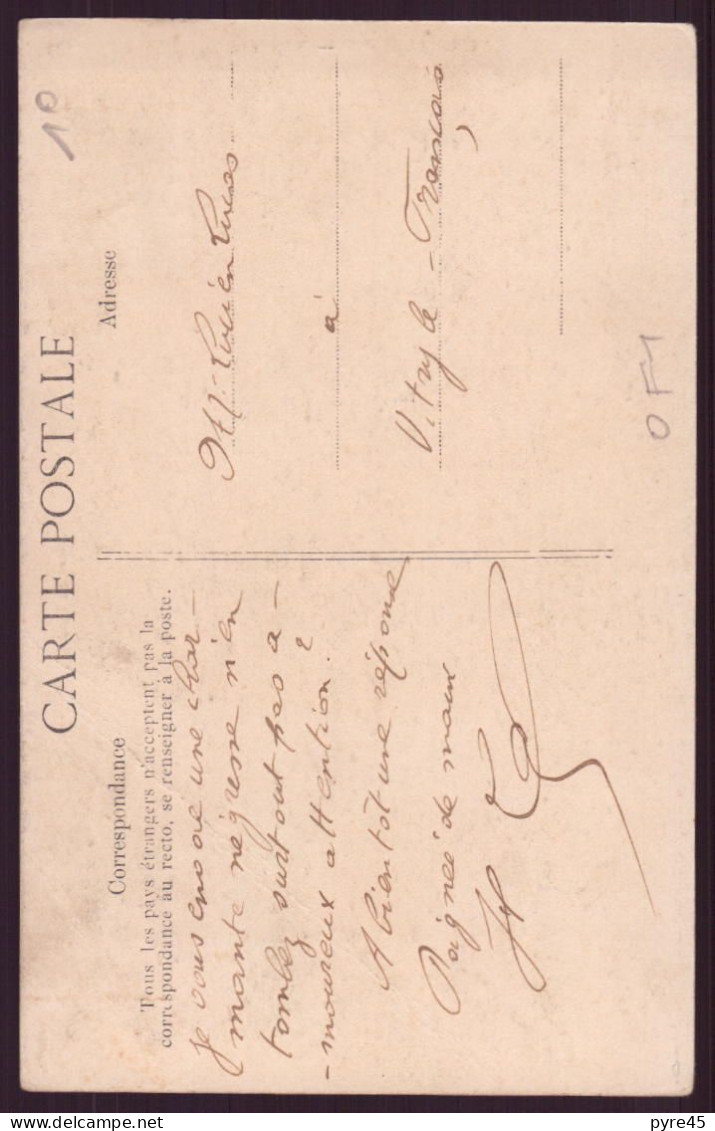 CARTE POSTALE
Correspondance
Tous les pays étrangers n'acceptent pas la
correspondance au recto, se renseigner à la poste.
Je vous envoie une char-
mante négresse n'en
tombez surtout pas a-
-moureux attention !
A bientôt une réponse
Poignée de main
Adresse
Mr Lucien Lucas
à
Vitry le-François
1º
OFM
pyre45